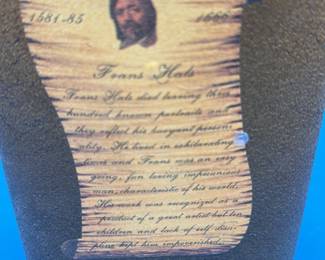 1581-85 1666
Frans Hals
Frans Hals died leaving three
hundred known portraits and
they reflect his buoyant person-
ality. He lived in exhilarating
times and Frans was an easy
going, fun loving impecunious
man, characteristic of his world.
His work was recognized as a
product of a great artist but ten
children and lack of self disci-
pline kept him impoverished.